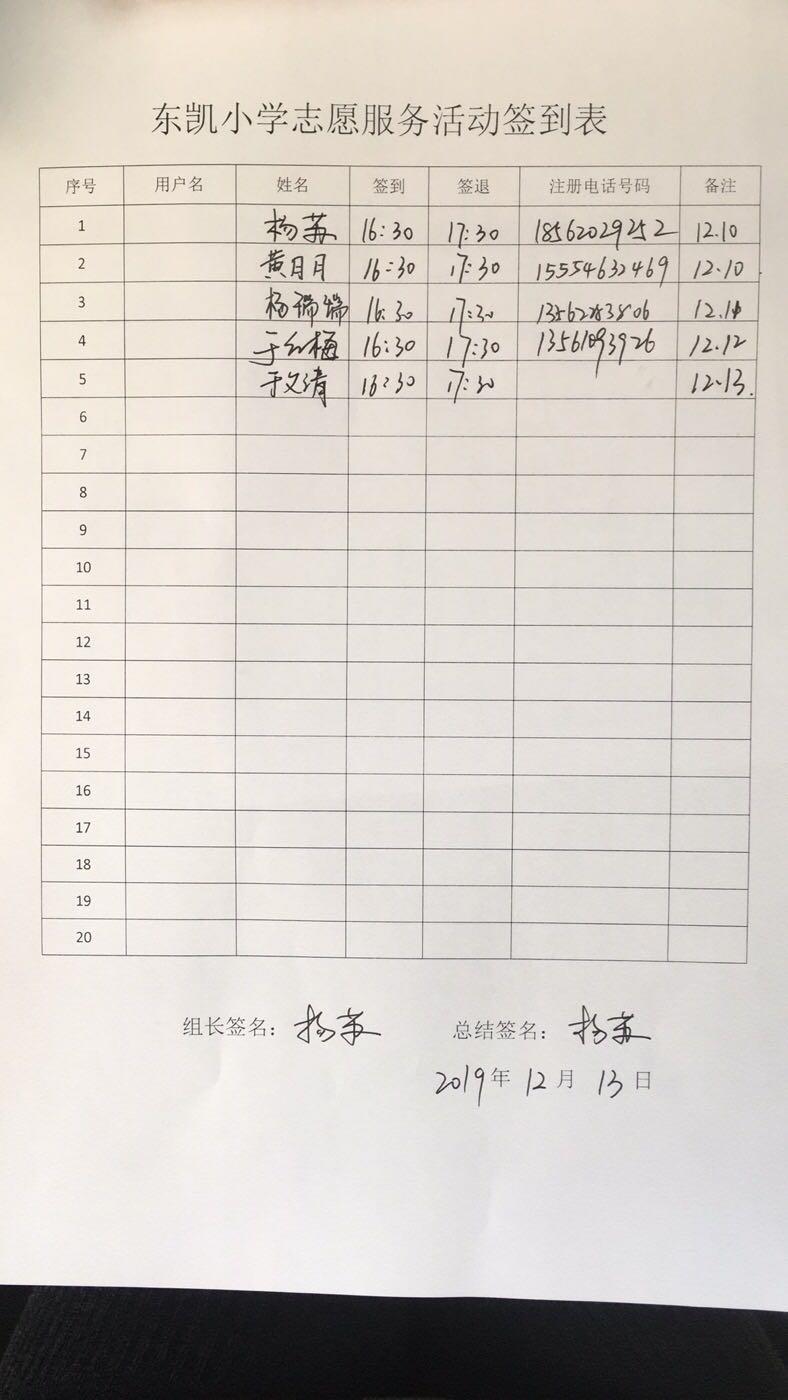 东凯小学志愿服务活动签到表
序号 用户名 姓名 签到 签退 注册电话号码 备注
1 杨苏 16:30 17:30 18562029252 12.10
2 黄月月 16:30 17:30 15554632469 12.10
3 杨瑞瑞 16:30 17:30 12.11
4 于红梅 16:30 17:30 13561093926 12.12
5 于文清 16:30 17:30 12.13.
6
7
8
9
10
11
12
13
14
15
16
17
18
19
20
组长签名：杨苏 总结签名：杨苏
2019年 12月 13日